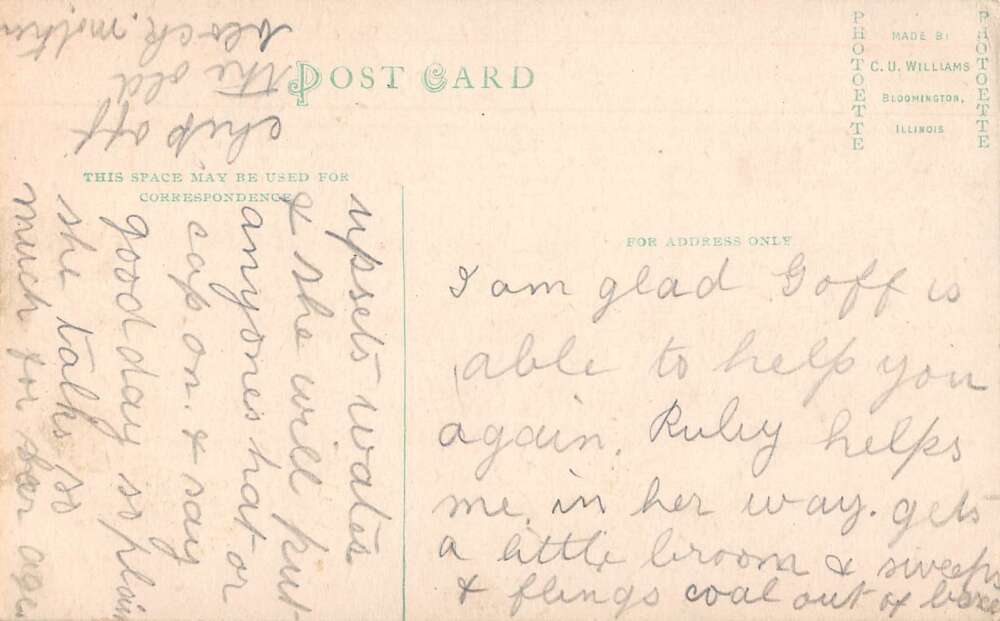 POST CARD
PHOTOETTE
MADE BY
C.U. WILLIAMS
BLOOMINGTON,
ILLINOIS
PHOTOETTE
THIS SPACE MAY BE USED FOR
CORRESPONDENCE
FOR ADDRESS ONLY
I am glad Goff is
able to help you
again. Ruby helps
me in her way. gets
a little broom & sweeps
& flings coal out of box
upsets water
& she will put
anyones hat or
cap on. & say
good day so plain
she talks so
much for her age
chip off
the old
block. mother